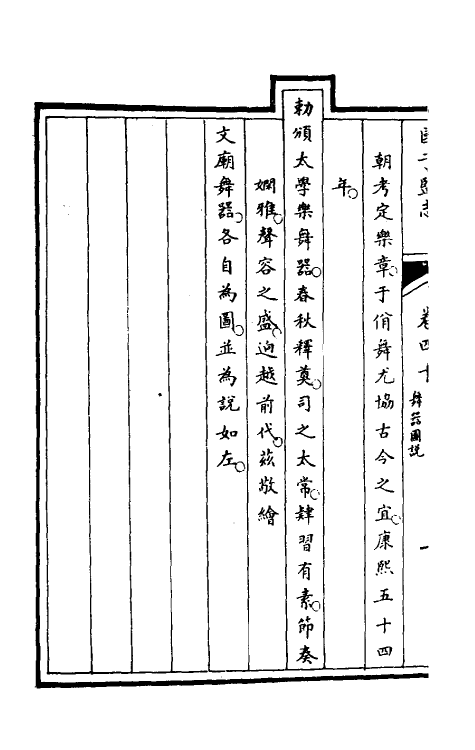 國子監志
卷四十
舞器圖說
一
朝考定樂章于佾舞尤協古今之宜康熙五十四
年
勅頒太學樂舞器春秋釋奠司之太常肄習有素節奏
嫻雅聲容之盛迥越前代茲敬繪
文廟舞器各自為圖並為說如左